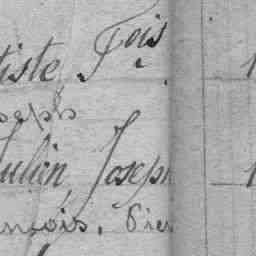 tiste Fois
seph
Julien, Joseph
nçois, Pier